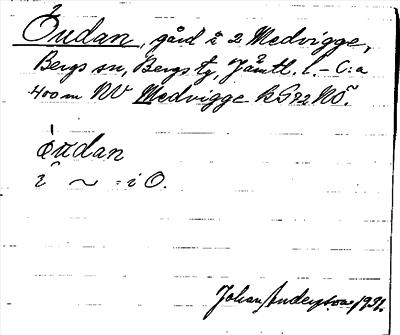 Öudan, gård i 2 Medvigge,
Bergs sn, Bergs tg, Jämtl. l. – C:a
400 m NV Medvigge k G72 NÖ.
òudan
i ~ = i O.
Johan Anderson 1931.